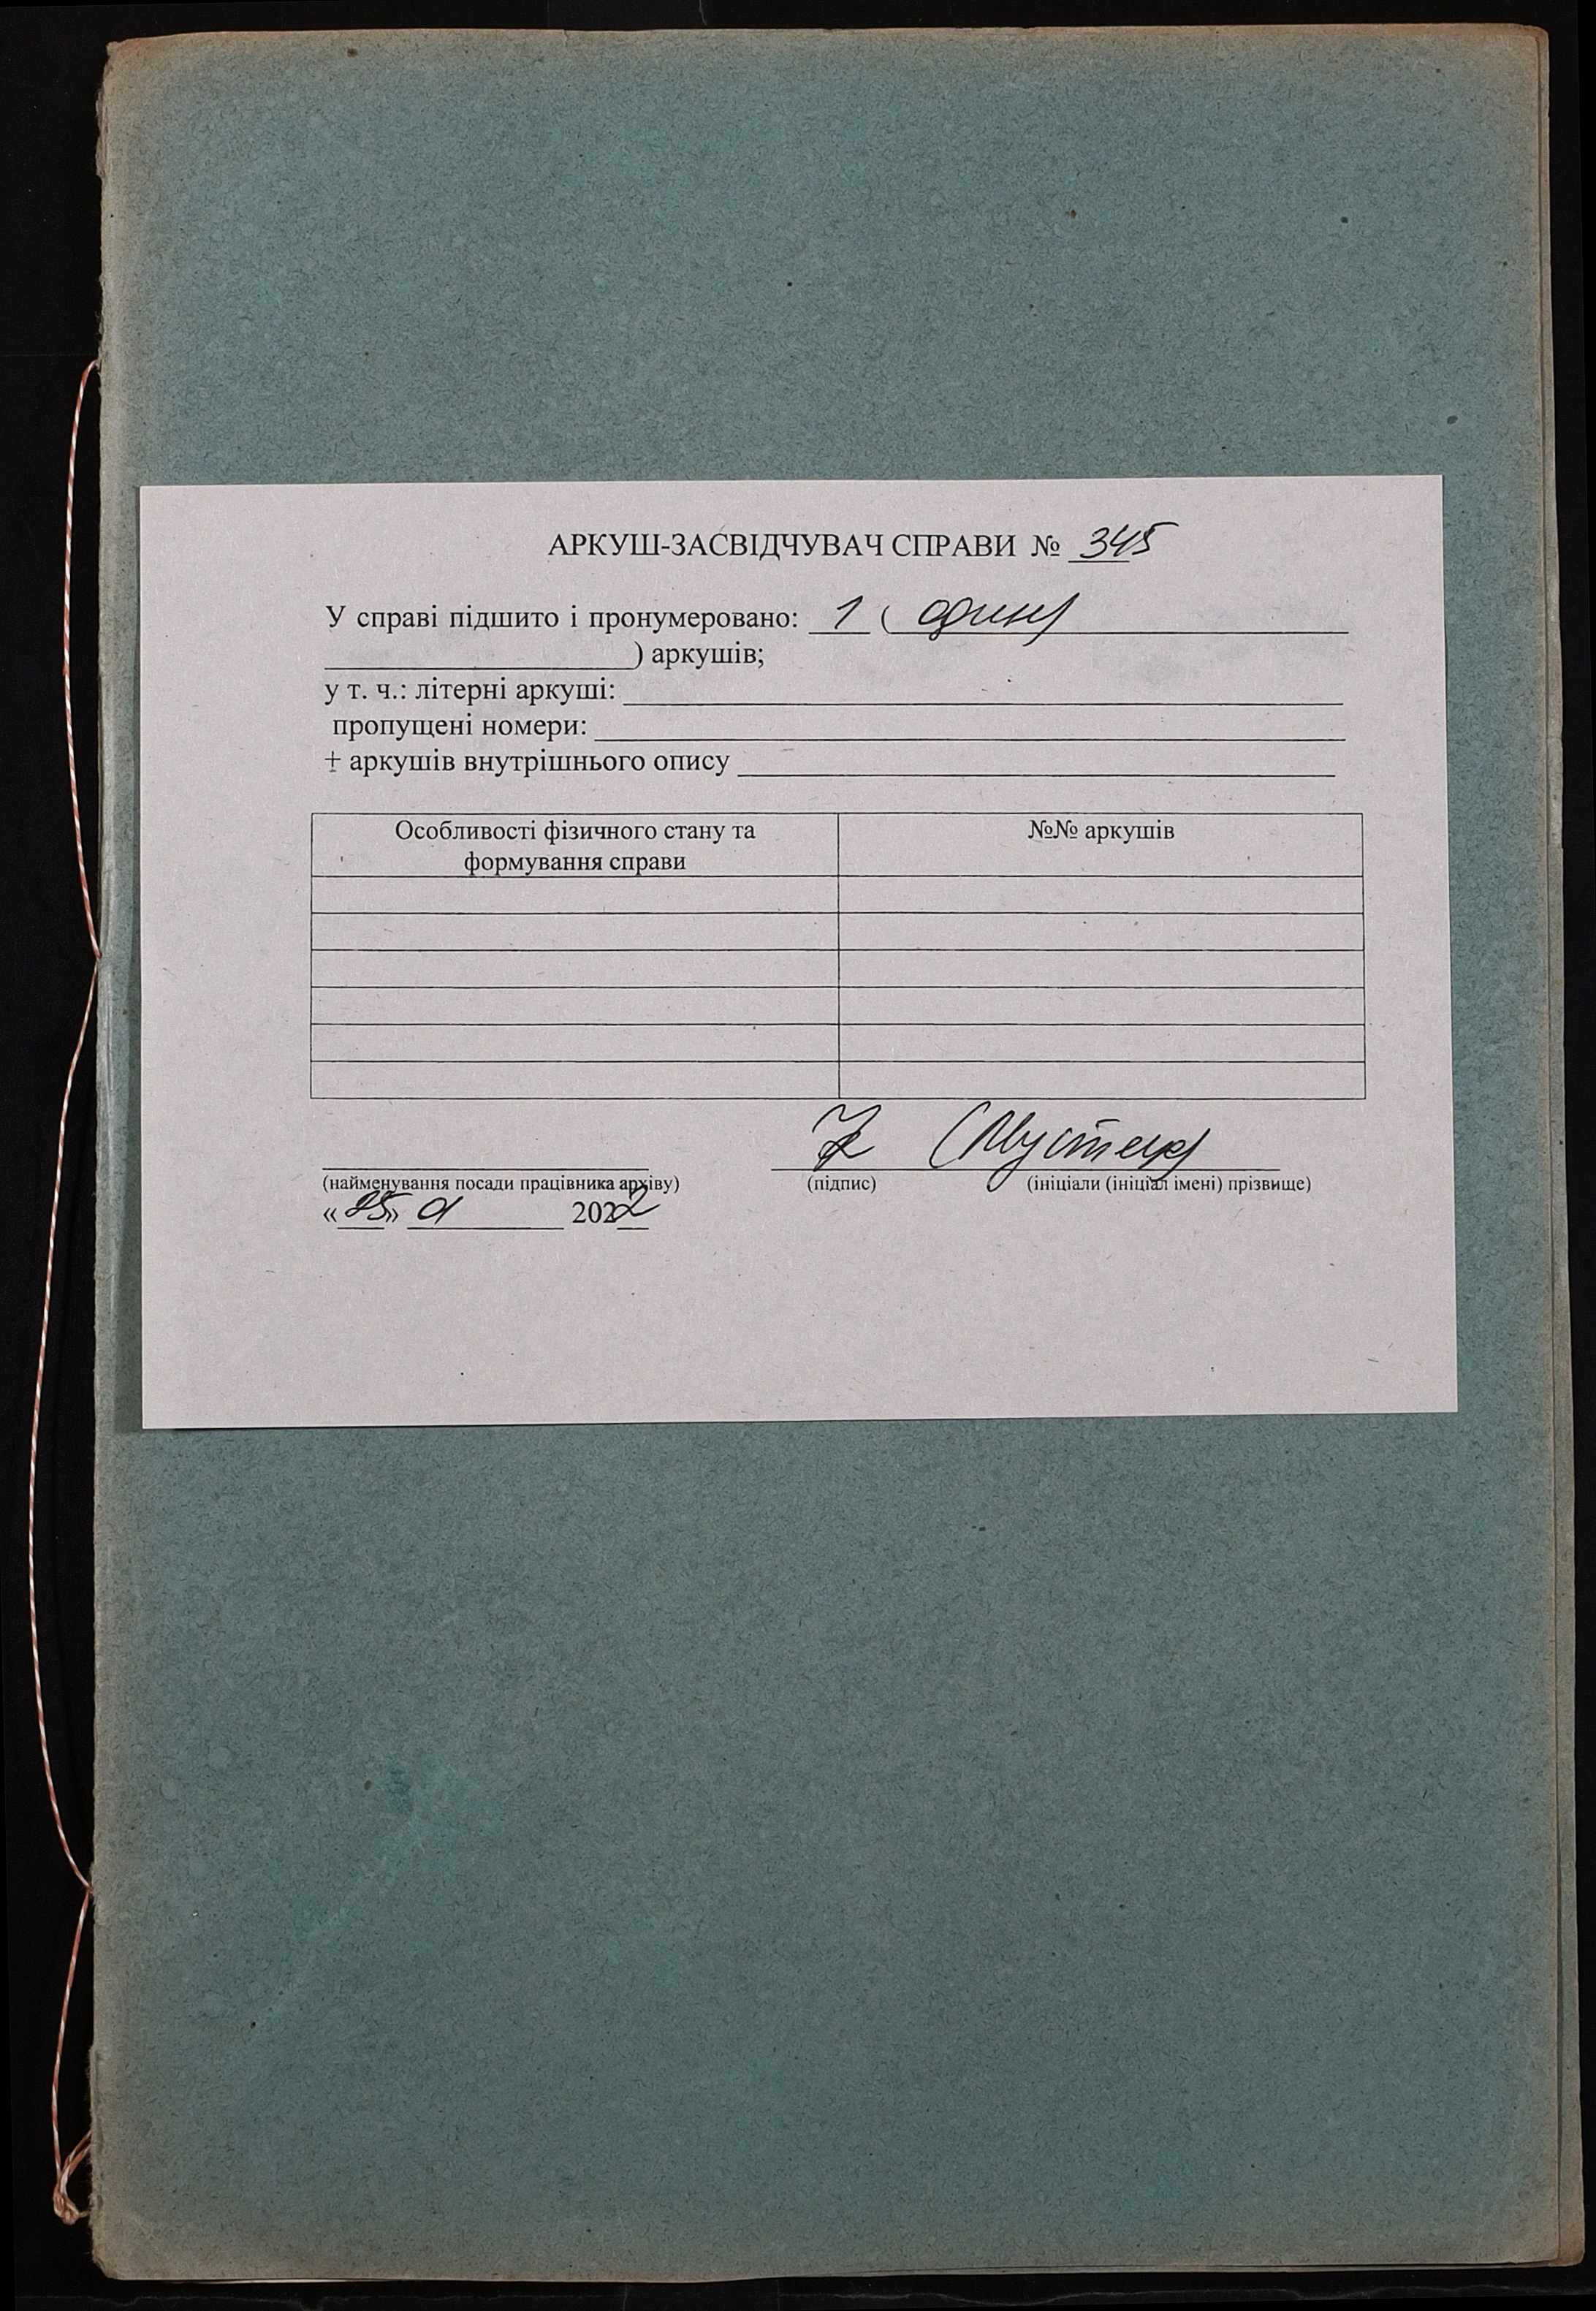 АРКУШ-ЗАСВІДЧУВАЧ СПРАВИ № 345
У справі підшито і пронумеровано: 1 ( один)
) аркушів;
у т. ч.: літерні аркуші:
пропущені номери:
+ аркушів внутрішнього опису
Особливості фізичного стану та
формування справи
№№ аркушів
(найменування посади працівника архіву)
(підпис)
(ініціали (ініціал імені) прізвище)
«25» 2022